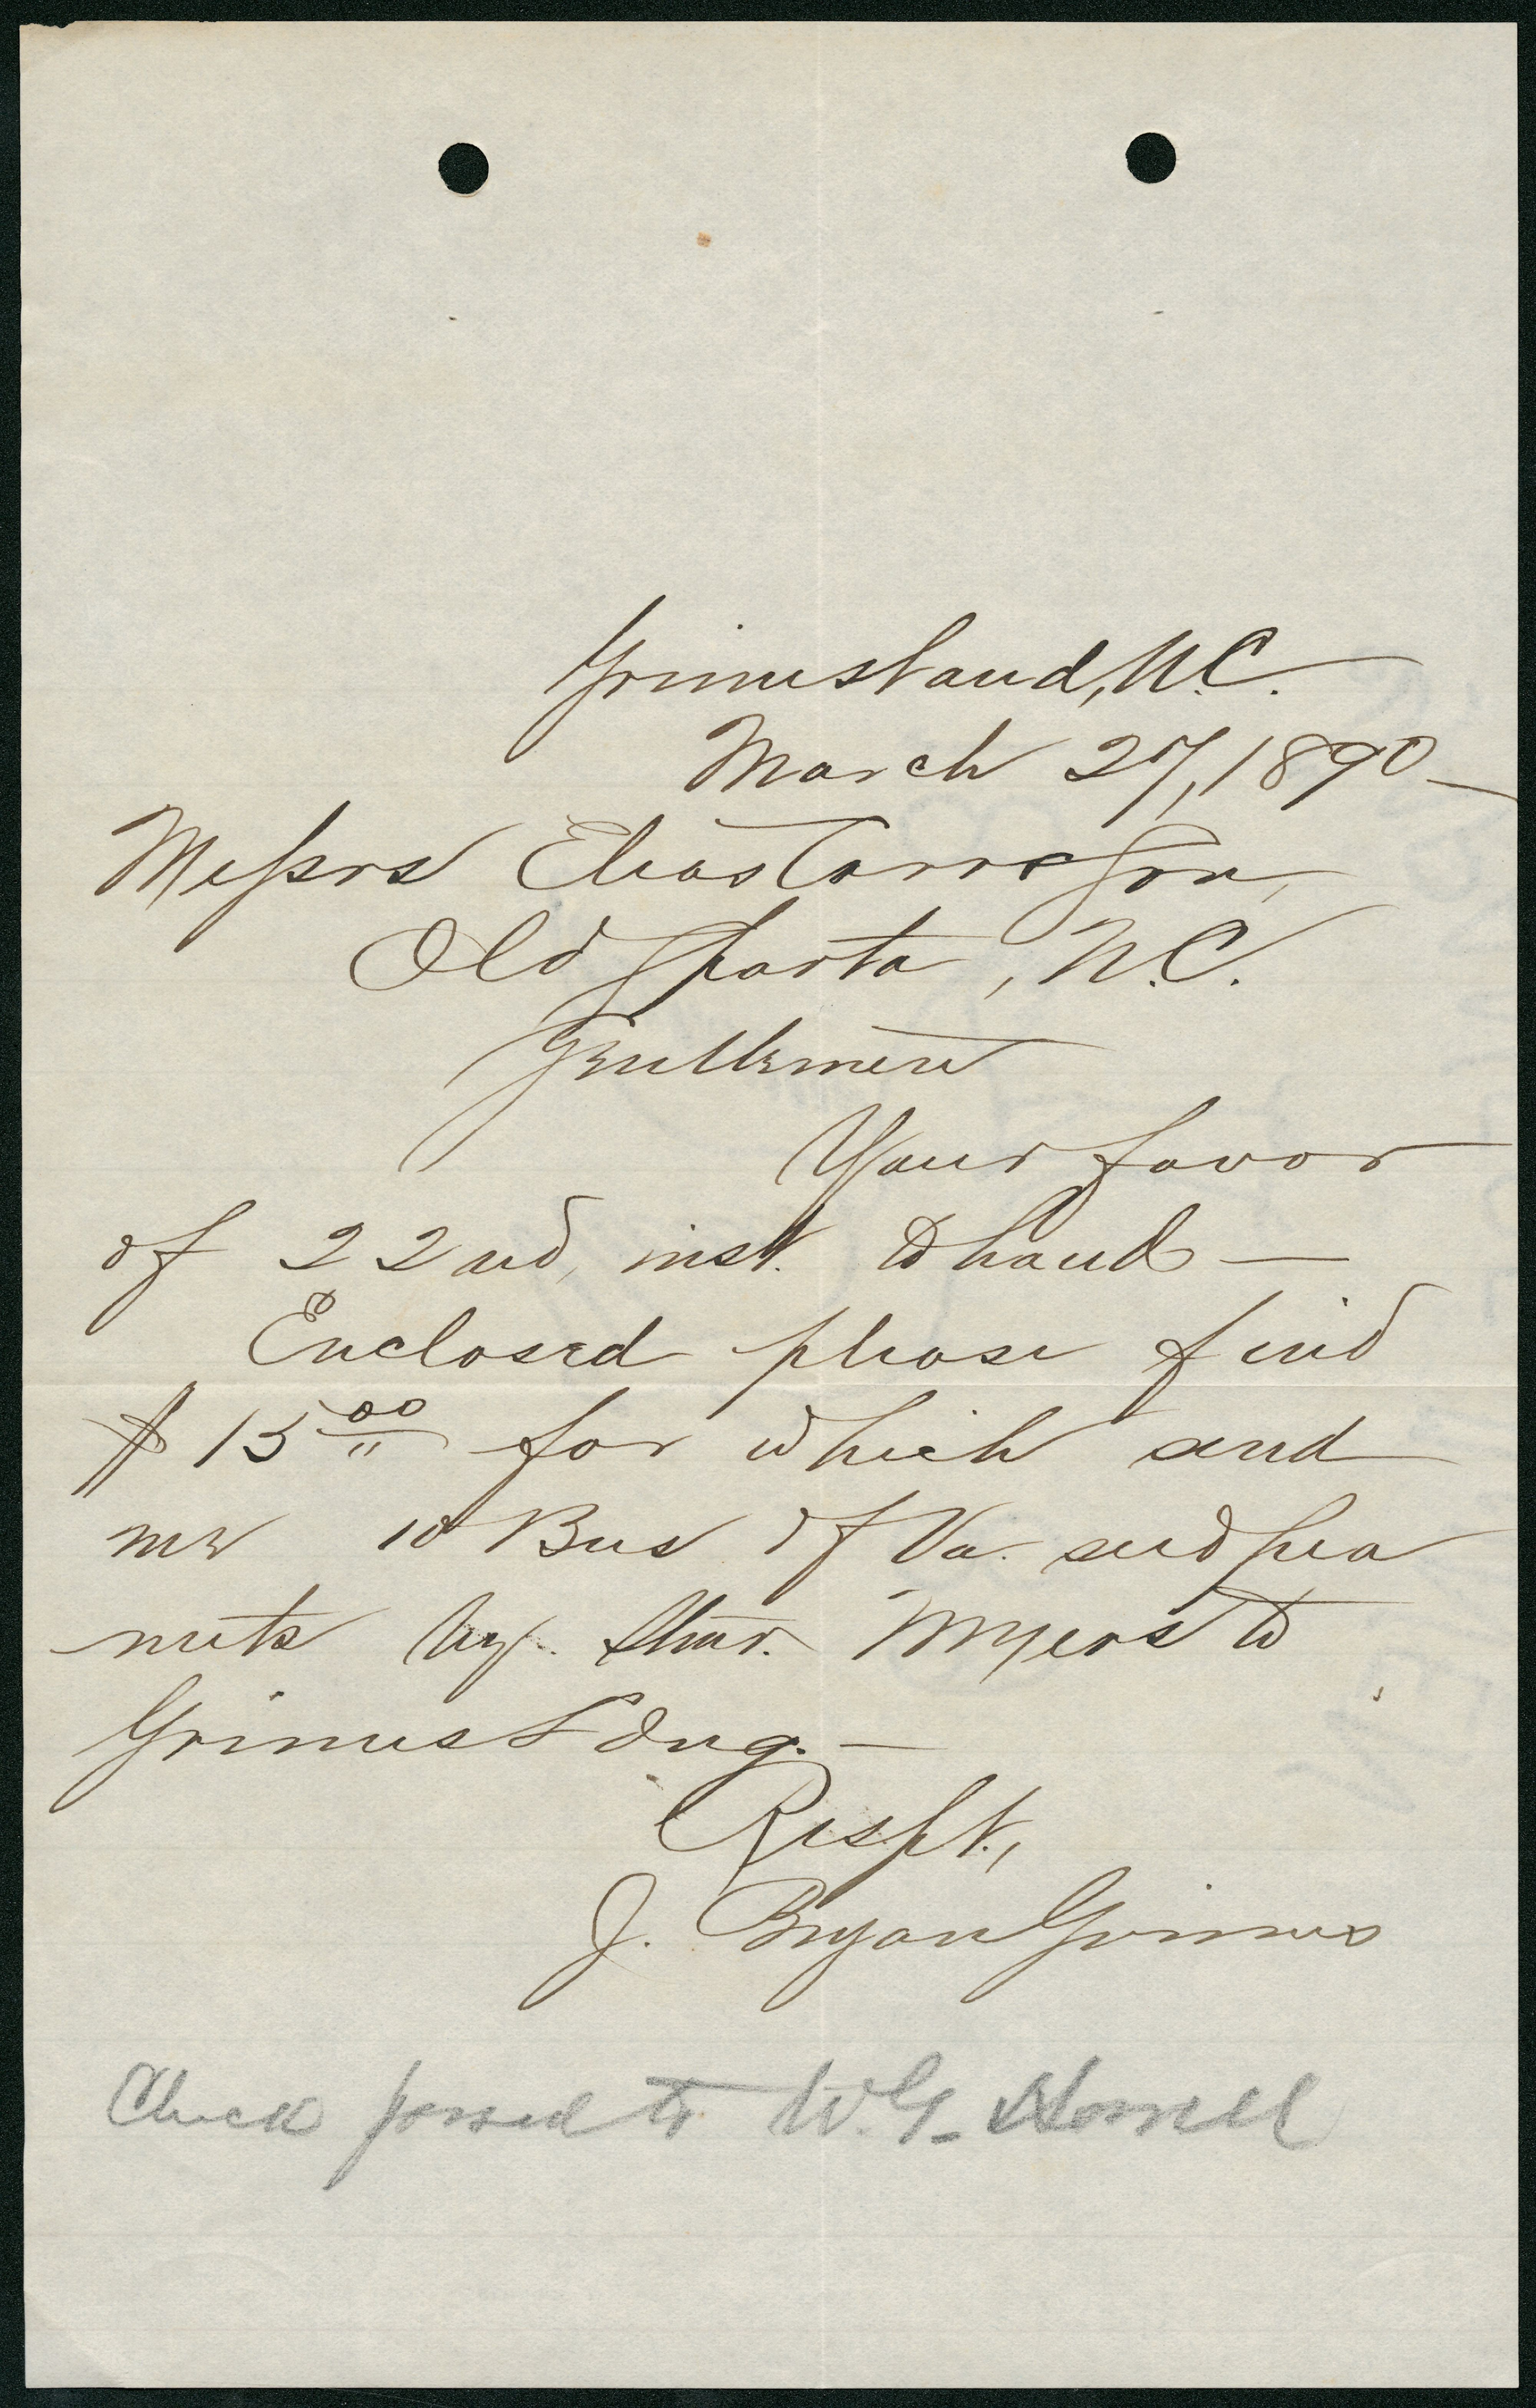 Grimesland, N.C.
March 27, 1890
Messrs Elias Carr & Son,
Old Sparta, N.C.
Gentlemen
Your favor
of 22nd, inst. to hand —
Enclosed please find
$15 00 for which send
me 10 Bus of Va. seed pea
nuts by Stmr. Myers to
Grimes Ldng. —
Respt.,
J. Bryan Grimes
Check passed to W.G.